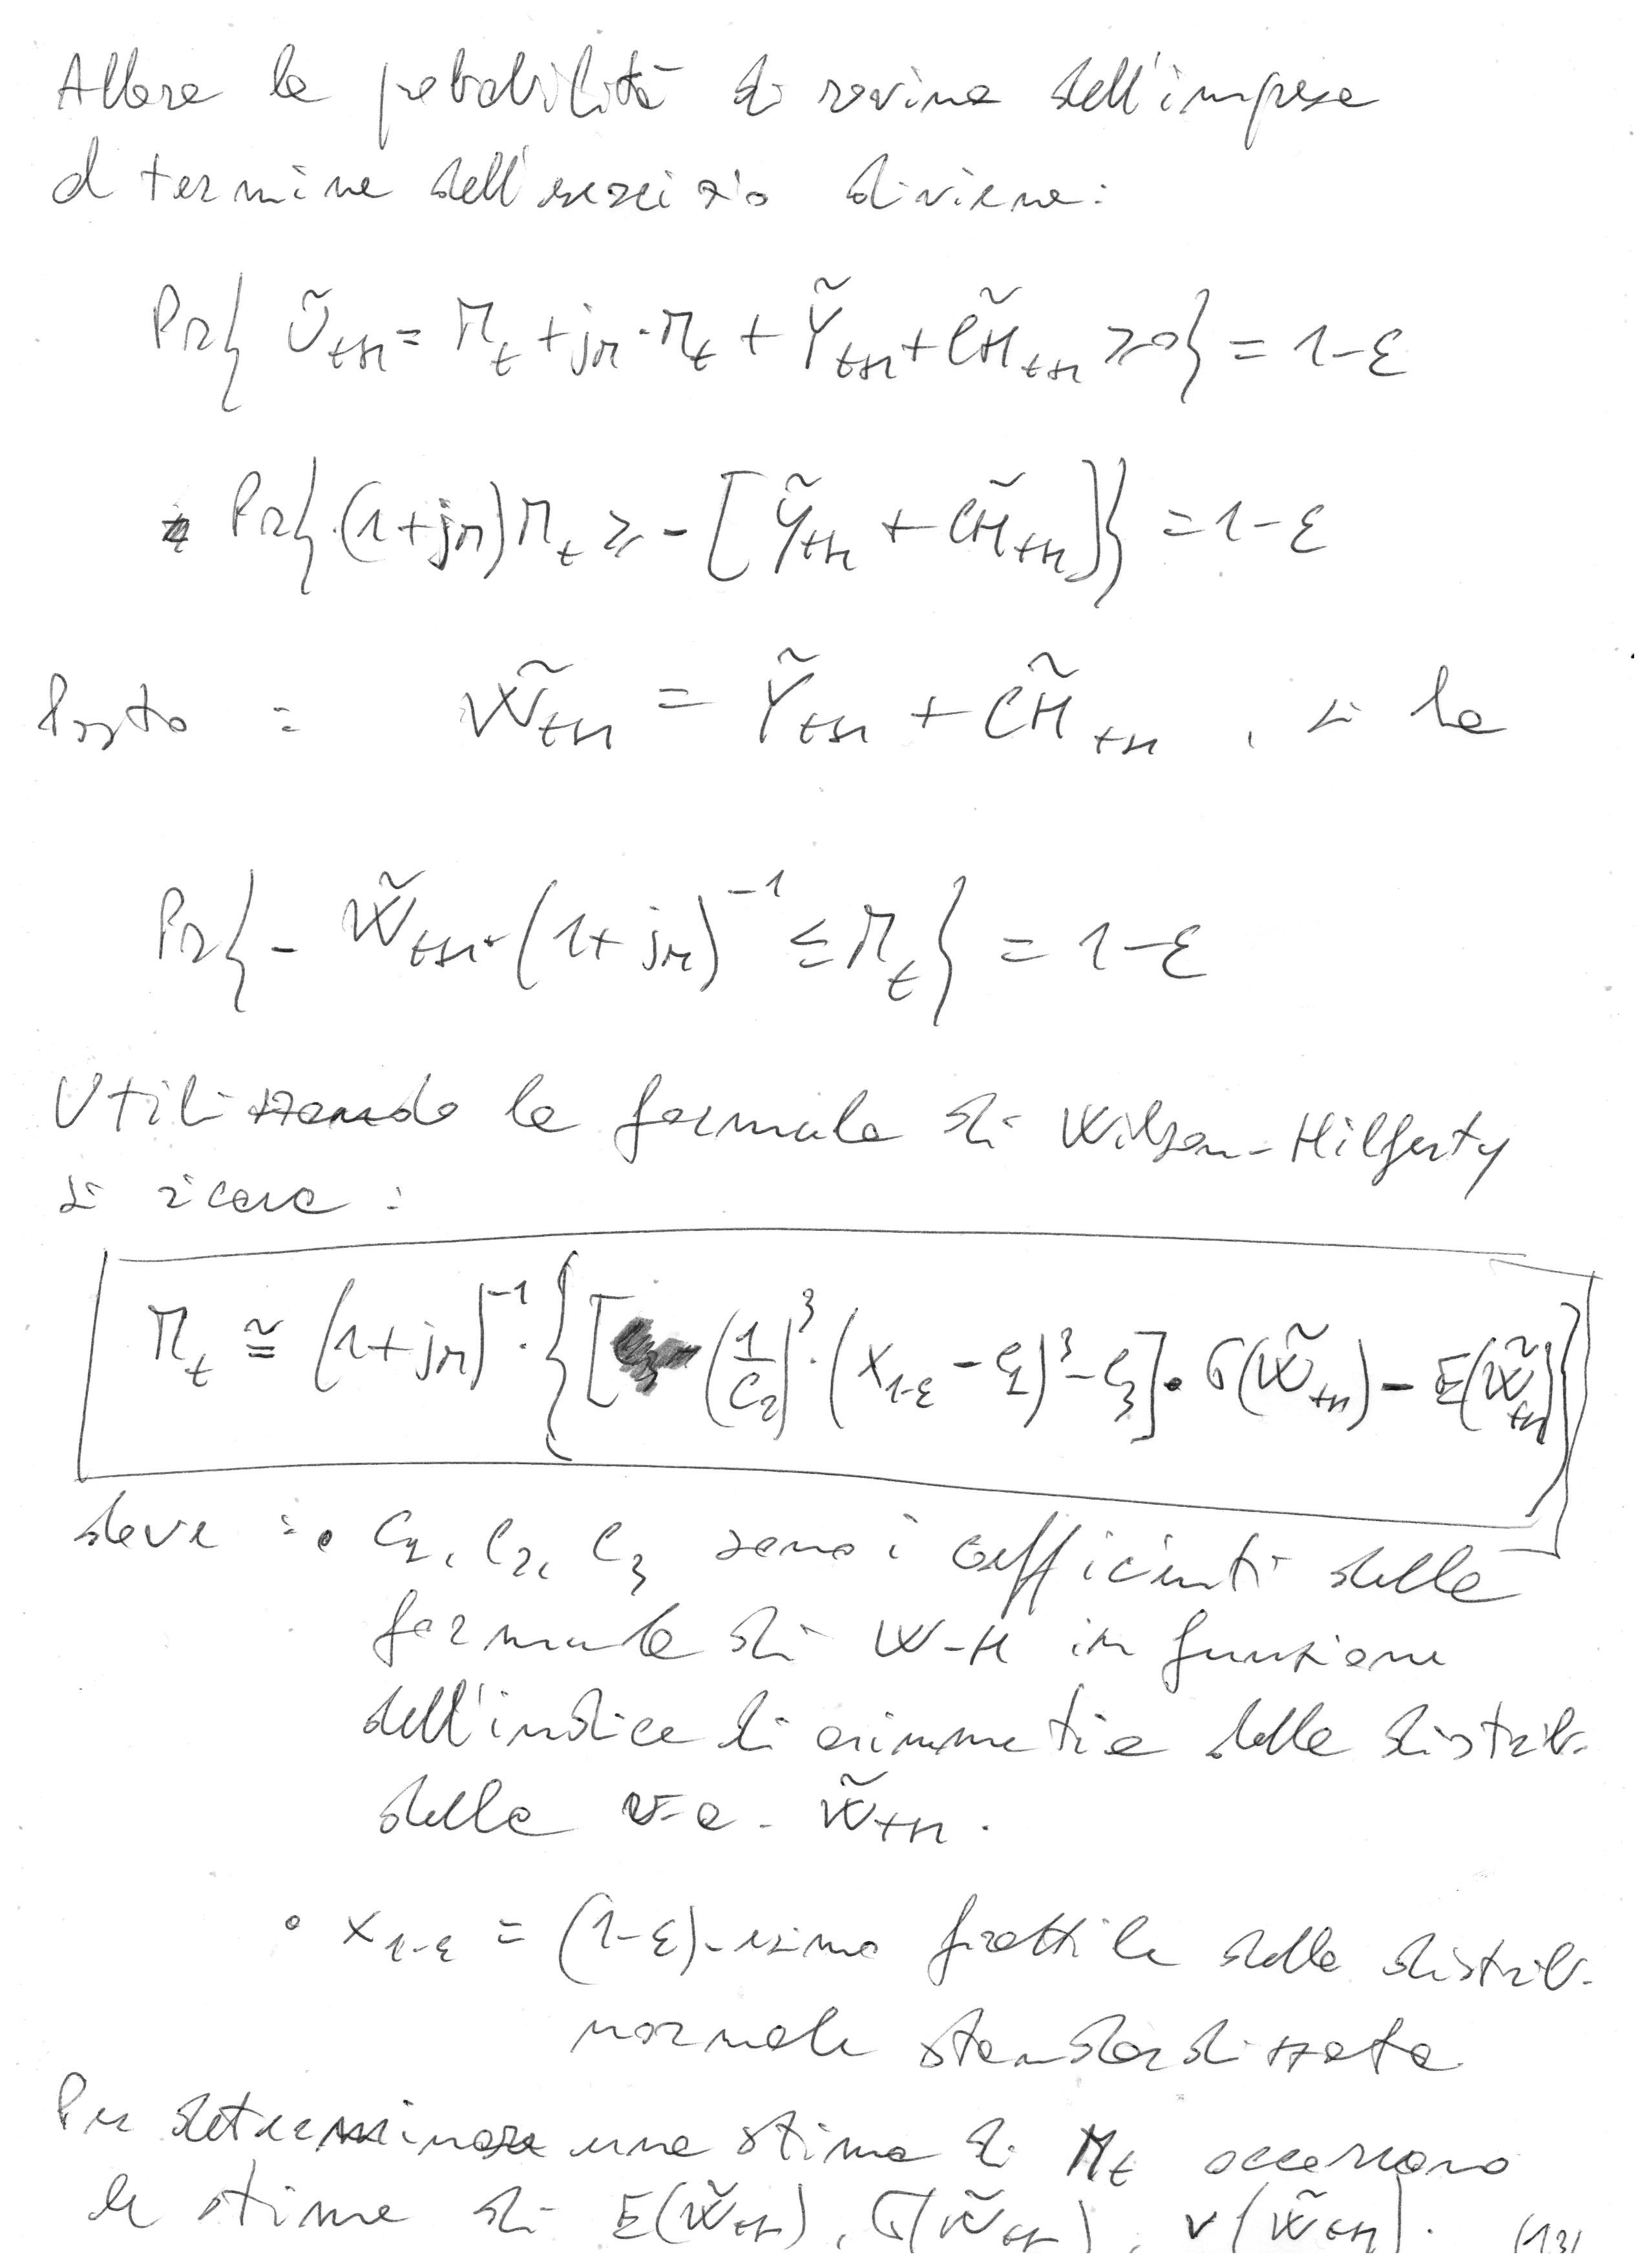 Allora la probabilità di rovina dell'impresa
al termine dell'esercizio diviene:
Pr{ Ũ_{t+1} = M_t + j_M · M_t + Ỹ_{t+1} + C̃H_{t+1} ≥ 0 } = 1-ε
Pr{ (1+j_M) M_t ≥ - [ Ỹ_{t+1} + C̃H_{t+1} ] } = 1-ε
Posto : W̃_{t+1} = Ỹ_{t+1} + C̃H_{t+1} , si ha
Pr{ - W̃_{t+1} · (1+j_M)^{-1} ≤ M_t } = 1-ε
Utilizzando la formula di Wilson-Hilferty
si ricava :
M_t ≅ (1+j_M)^{-1} · { [ (1/c_2)^3 · (x_{1-ε} - c_1)^3 - c_3 ] · σ(W̃_{t+1}) - E(W̃_{t+1}) }
dove : • c_1, c_2, c_3 sono i coefficienti della
formula di W-H in funzione
dell'indice di asimmetria della distrib.
della v.a. W̃_{t+1} .
• x_{1-ε} = (1-ε)-esimo frattile della distrib.
normale standardizzata
Per determinare una stima di M_t occorrono
le stime di E(W̃_{t+1}), σ(W̃_{t+1}), γ(W̃_{t+1}). (13)